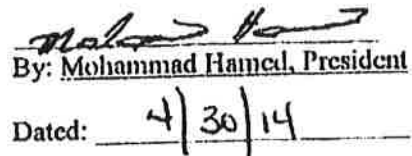 By: Mohammad Hamed, President
Dated: 4/30/14